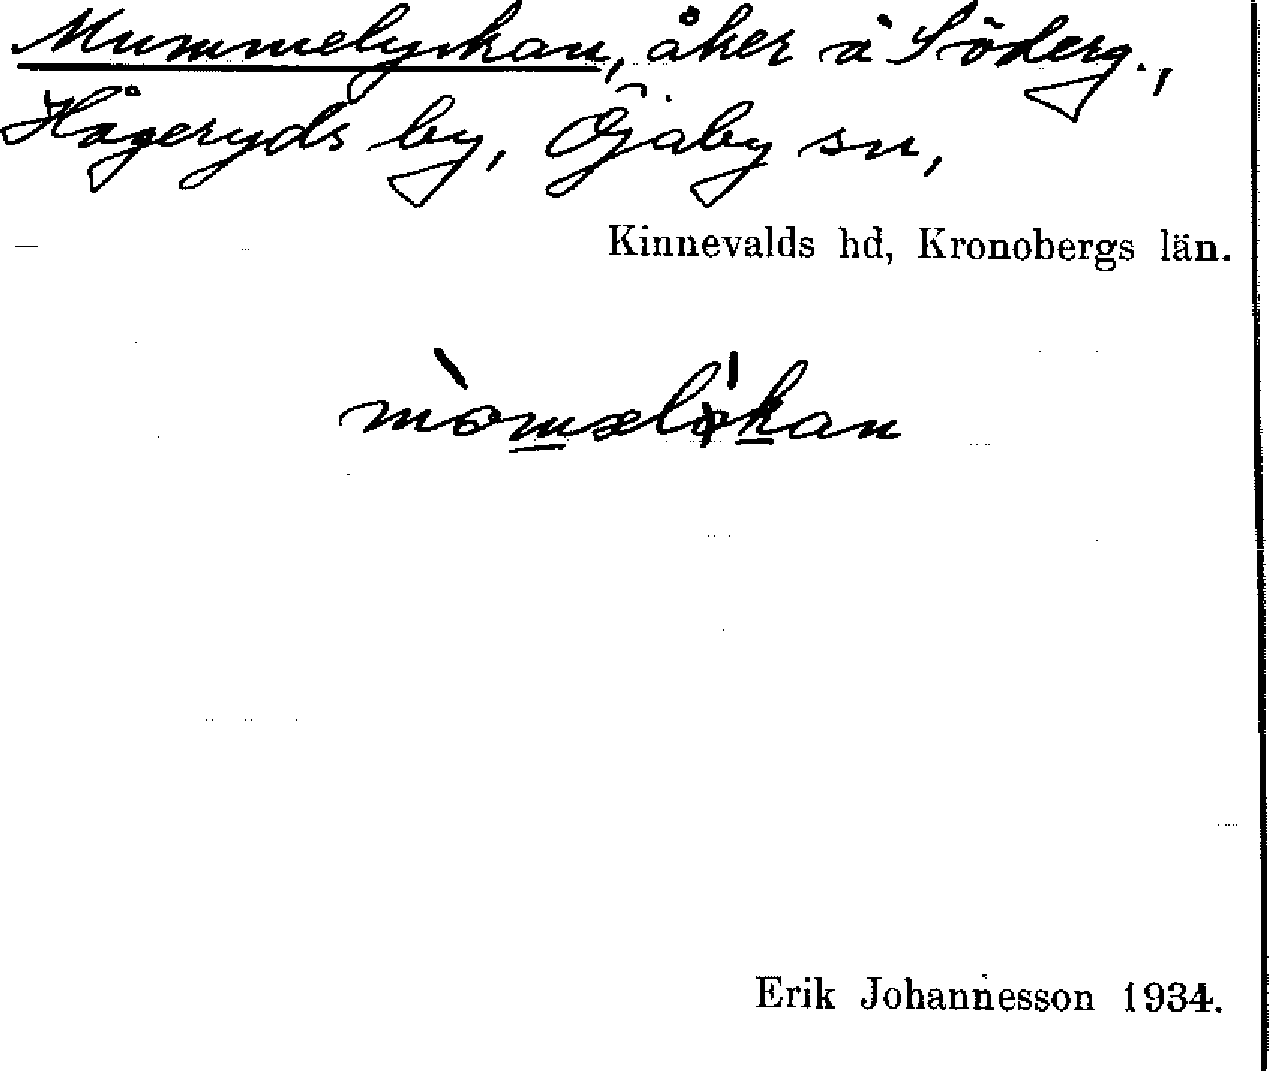 Mummelyckan, åker å Söderg.,
Hågeryds by, Öjaby sn,
Kinnevalds hd, Kronobergs län.
Erik Johannesson 1934.